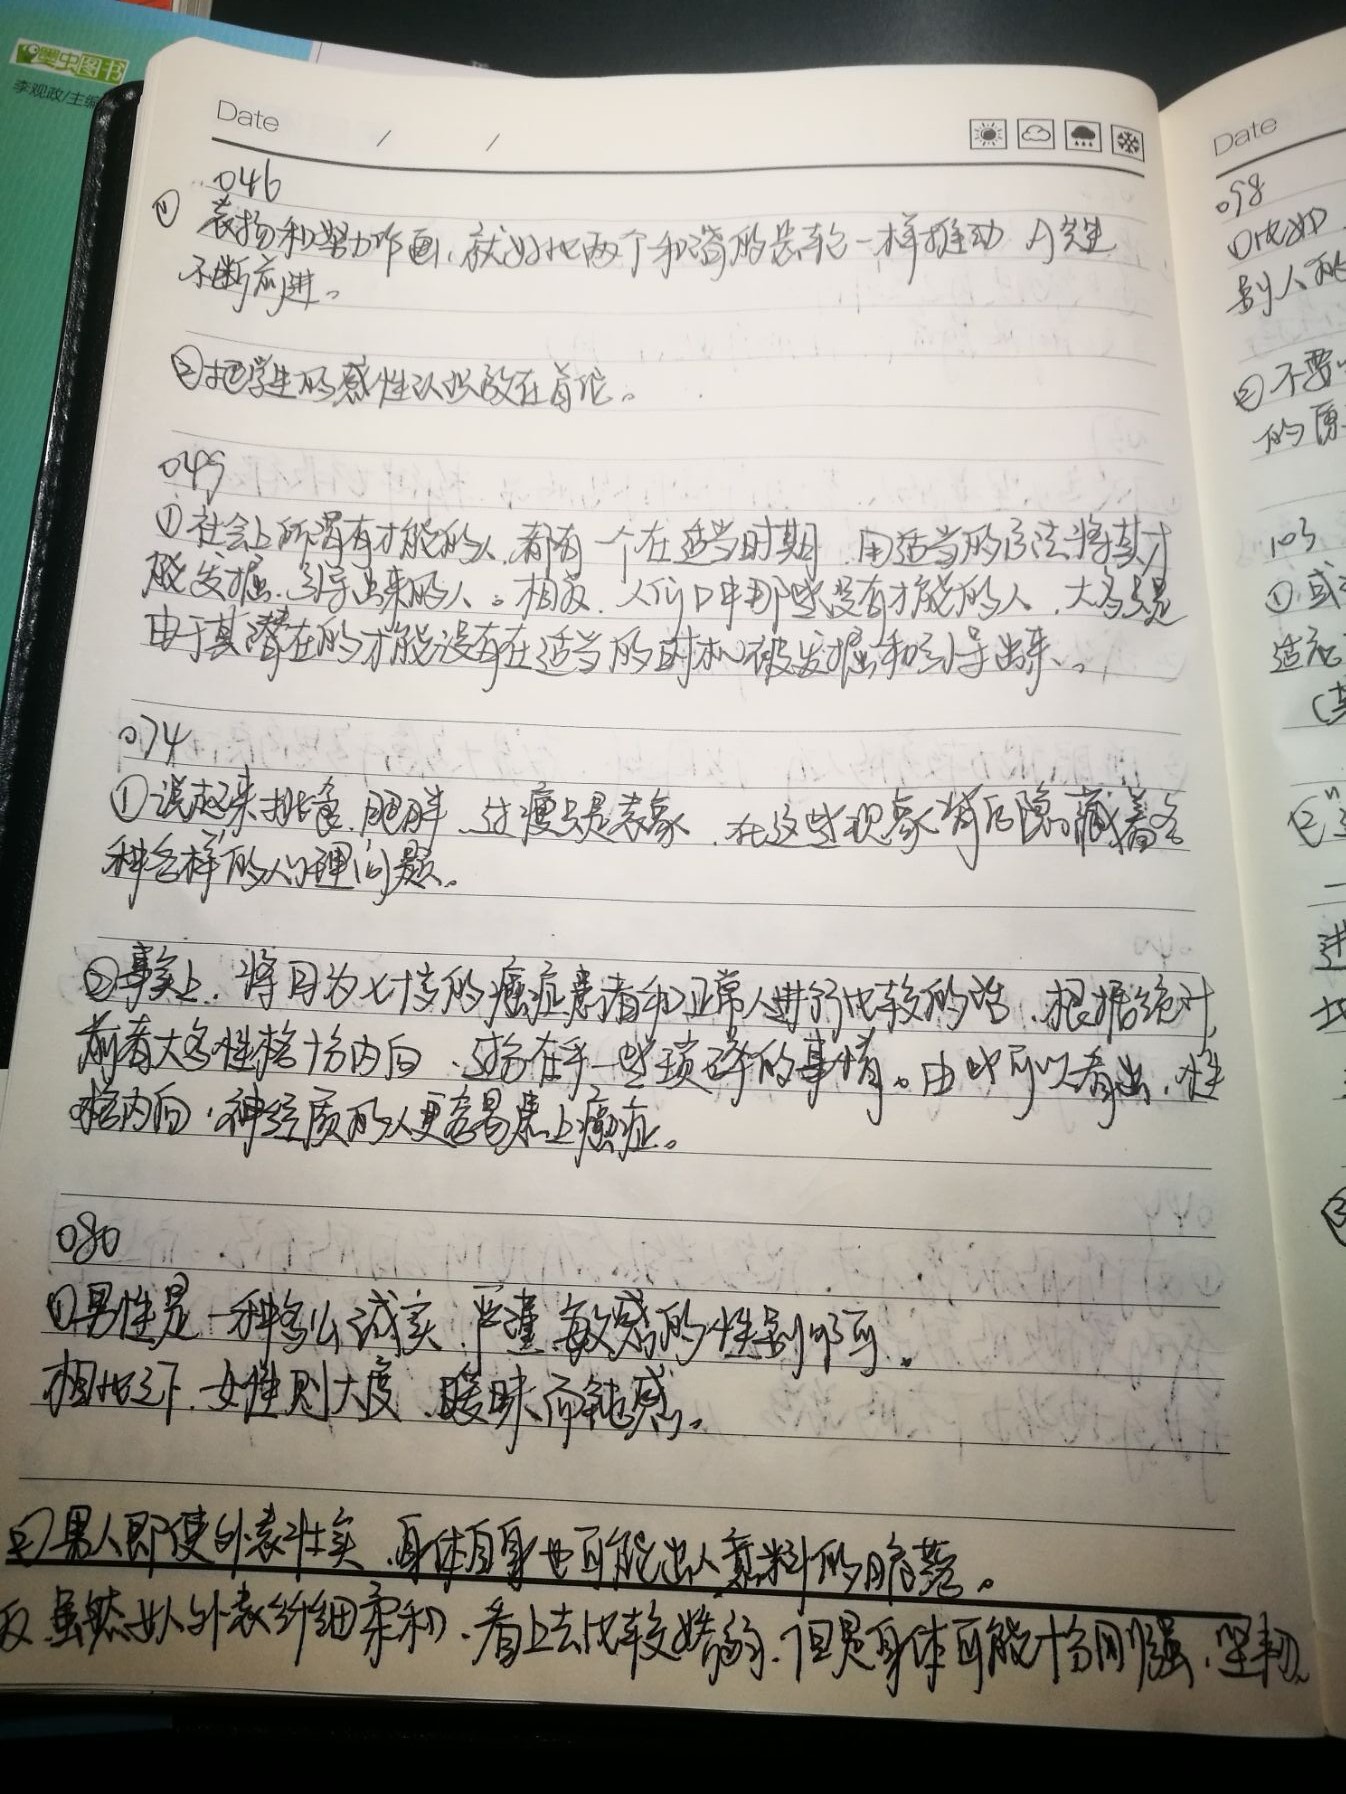 墨虫图书
李观政/主编
Date / /
046
① 表扬和努力作画,就好比两个和谐的齿轮一样推动 学生
不断前进。
②把学生的感性认识放在首位。
049
①社会上所谓有才能的人,都有一个在适当时期,用适当的方法将其才
能发掘、引导出来的人。相反,人们口中那些没有才能的人,大多是
由于其潜在的才能没有在适当的时机被发掘和引导出来。
074
①说起来挑食、肥胖、过瘦只是表象,在这些现象背后隐藏着各
种各样的心理问题。
②事实上,将同为七十岁的癌症患者和正常人进行比较的话,根据统计,
前者大多性格十分内向,过分在乎一些琐碎的事情。由此可以看出,性
格内向、神经质的人更容易患上癌症。
080
①男性是一种多么诚实、严谨、敏感的性别啊。
相比之下,女性则大度、暧昧而钝感。
②男人即使外表壮实,身体自身也可能出人意料的脆弱。
反,虽然女人外表纤细柔和,看上去比较娇弱,但是身体可能十分刚强、坚韧。
Date
098
①比如
别人
②不要
的原
103
①或
适应
②
进